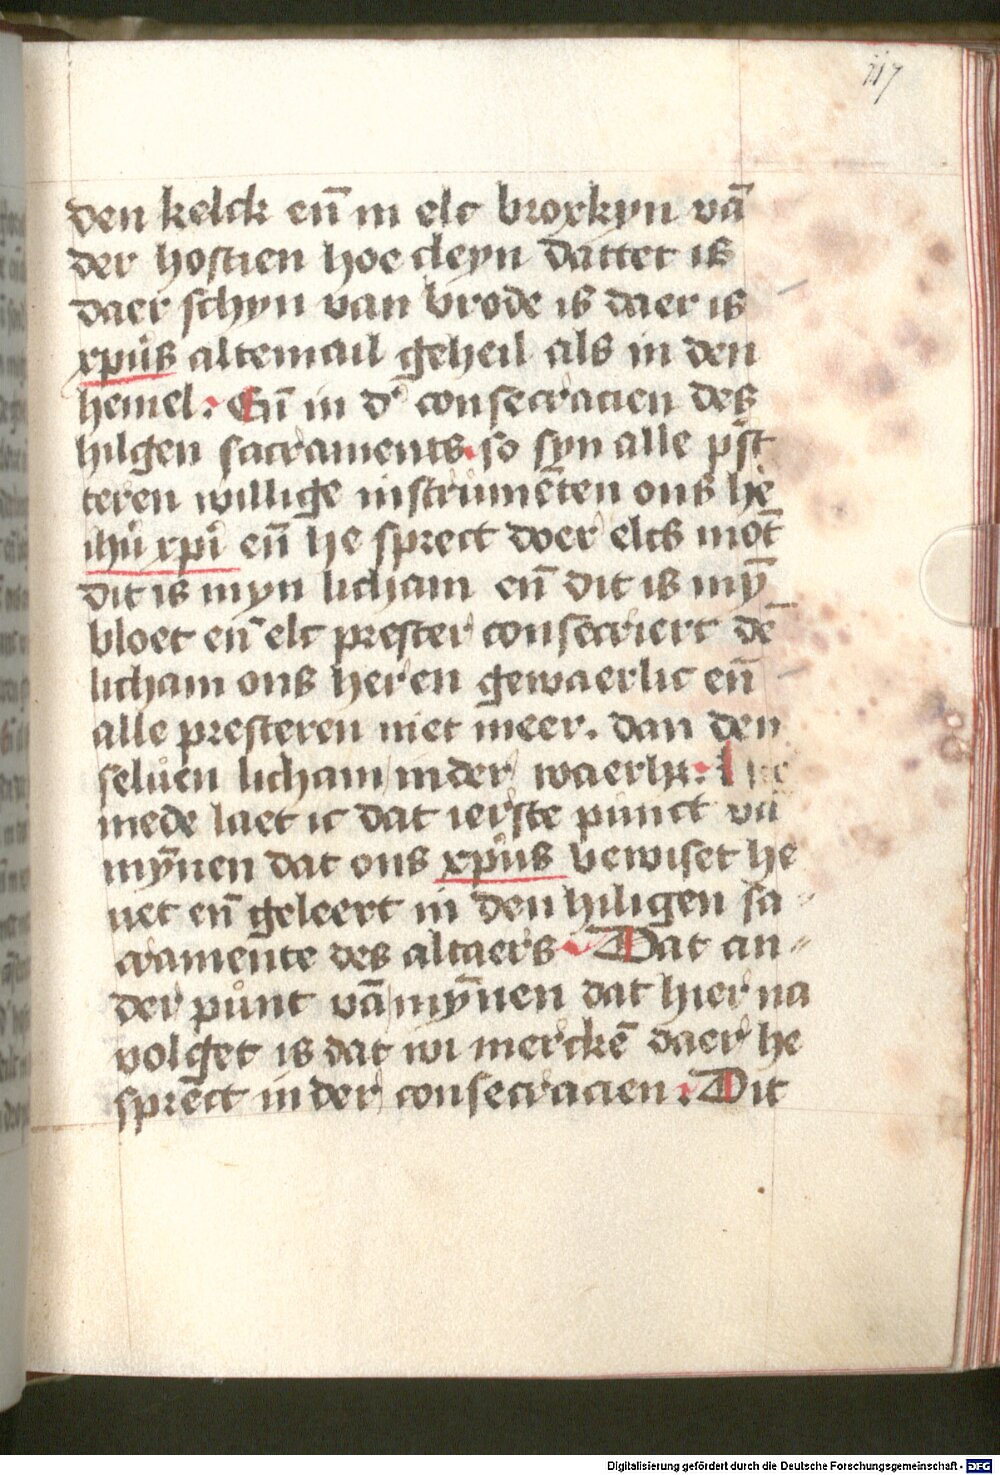 117
den kelck en̄ in elc broxkyn vā
der hostien hoe cleyn dattet is
daer schyn van brode is daer is
xpūs altemail geheil als in den
hemel. En̄ in d' consecracien des
hilgen sacraments. so syn alle p̄st
teren willige instrumēten ons he
ihū xpī en̄ he sprect doer elcs mōt
dit is myn licham en̄ dit is mȳ
bloet en̄ elc prester consecriert dē
licham ons heren gewaerlic en̄
alle presteren niet meer. dan den
seluen licham in der waerht.
mede laet ic dat ierste punct vā
mȳnen dat ons xpūs bewiset he
uet en̄ geleert in den hiligen sa-
cramente des altaers. Dat an-
der punt vā mȳnen dat hier na
volget is dat wi merckē daer he
sprect in der consecracien: Dit
Digitalisierung gefördert durch die Deutsche Forschungsgemeinschaft - DFG